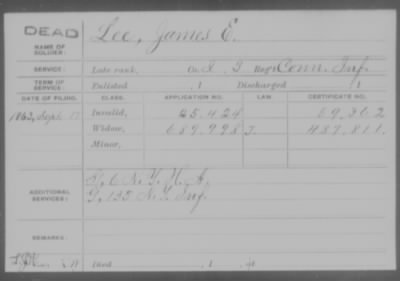 DEAD
NAME OF SOLDIER: Lee, James E.
SERVICE: Late rank, Co. I, 7 Reg't Conn. Inf.
TERM OF SERVICE: Enlisted , 1 Discharged , 1
DATE OF FILING. CLASS. APPLICATION NO. LAW. CERTIFICATE NO.
1863, Sept. 17 Invalid, 25.424 59.302
Widow, 689.998 J. 487.811
Minor,
ADDITIONAL SERVICES: 6 N.Y. H.A.
G, 135 N.Y. Inf.
REMARKS:
Died , 1 , at